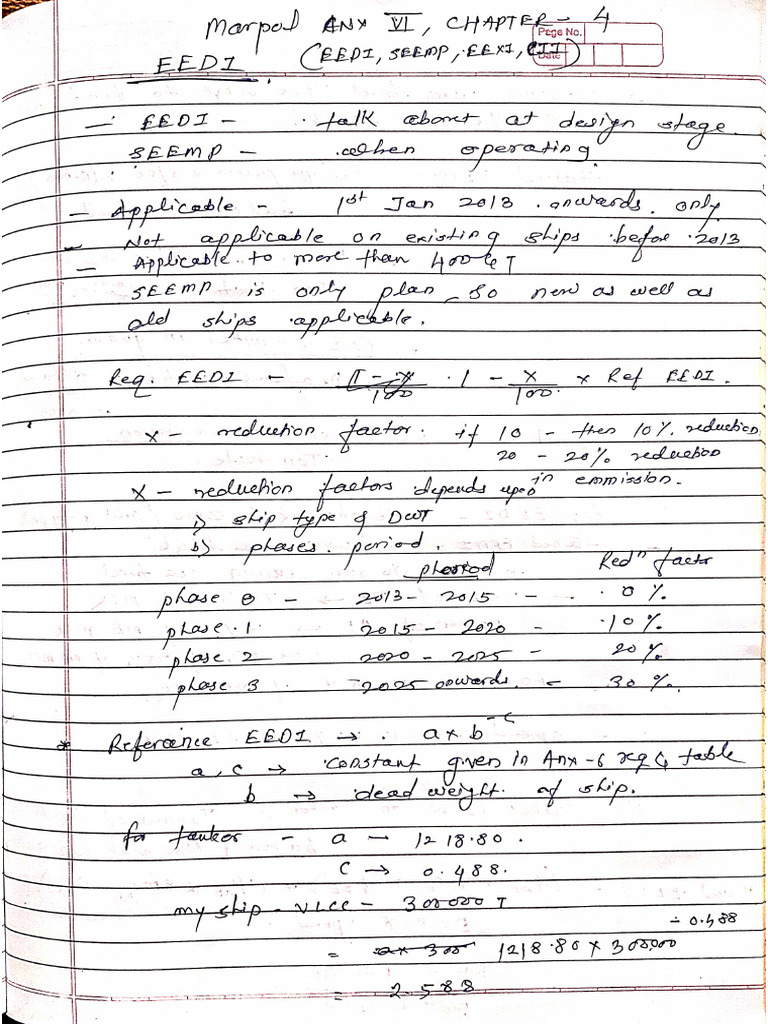 Marpol ANX VI, CHAPTER - 4
Page No.
Date
(EEDI, SEEMP, EEXI, CII)
EEDI
- EEDI - talk about at design stage.
SEEMP - when operating.
- Applicable - 1st Jan 2013 onwards only
- Not applicable on existing ships before 2013
- Applicable to more than 400 GT
SEEMP is only plan so new as well as
old ships applicable.
Req. EEDI - 1 - x/100 x Ref EEDI.
x - reduction factor. if 10 - then 10% reduction
20 - 20% reduction
x - reduction factors depends upon in emmission.
i) ship type & DWT
b) phases. period.
period Redn factor
phase 0 - 2013 - 2015 - 0%
phase 1 2015 - 2020 - 10%
phase 2 2020 - 2025 - 20%
phase 3 2025 onwards - 30%.
* Referance EEDI → a x b^-c
a, c → constant given in Anx-6 reg 4 table
b → dead weight of ship.
for tanker - a - 1218.80.
c → 0.488.
my ship - VLCC - 300000 T
= 1218.80 x 300000^-0.488
= 2.588